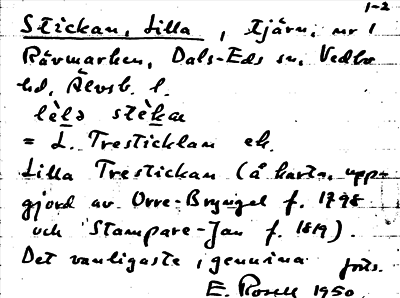 1-2
Stickan, Lilla, tjärn, nr 1
Rävmarken, Dals-Eds sn, Vedbo
hd, Älvsb. l.
lèlə stèkɑ
= L. Trestickla el.
Lilla Trestickan (å karta, upp-
gjord av Orre-Bryngel f. 1798
och Stampare-Jan f. 1819).
Det vanligaste i genuina forts.
E. Rosell 1950